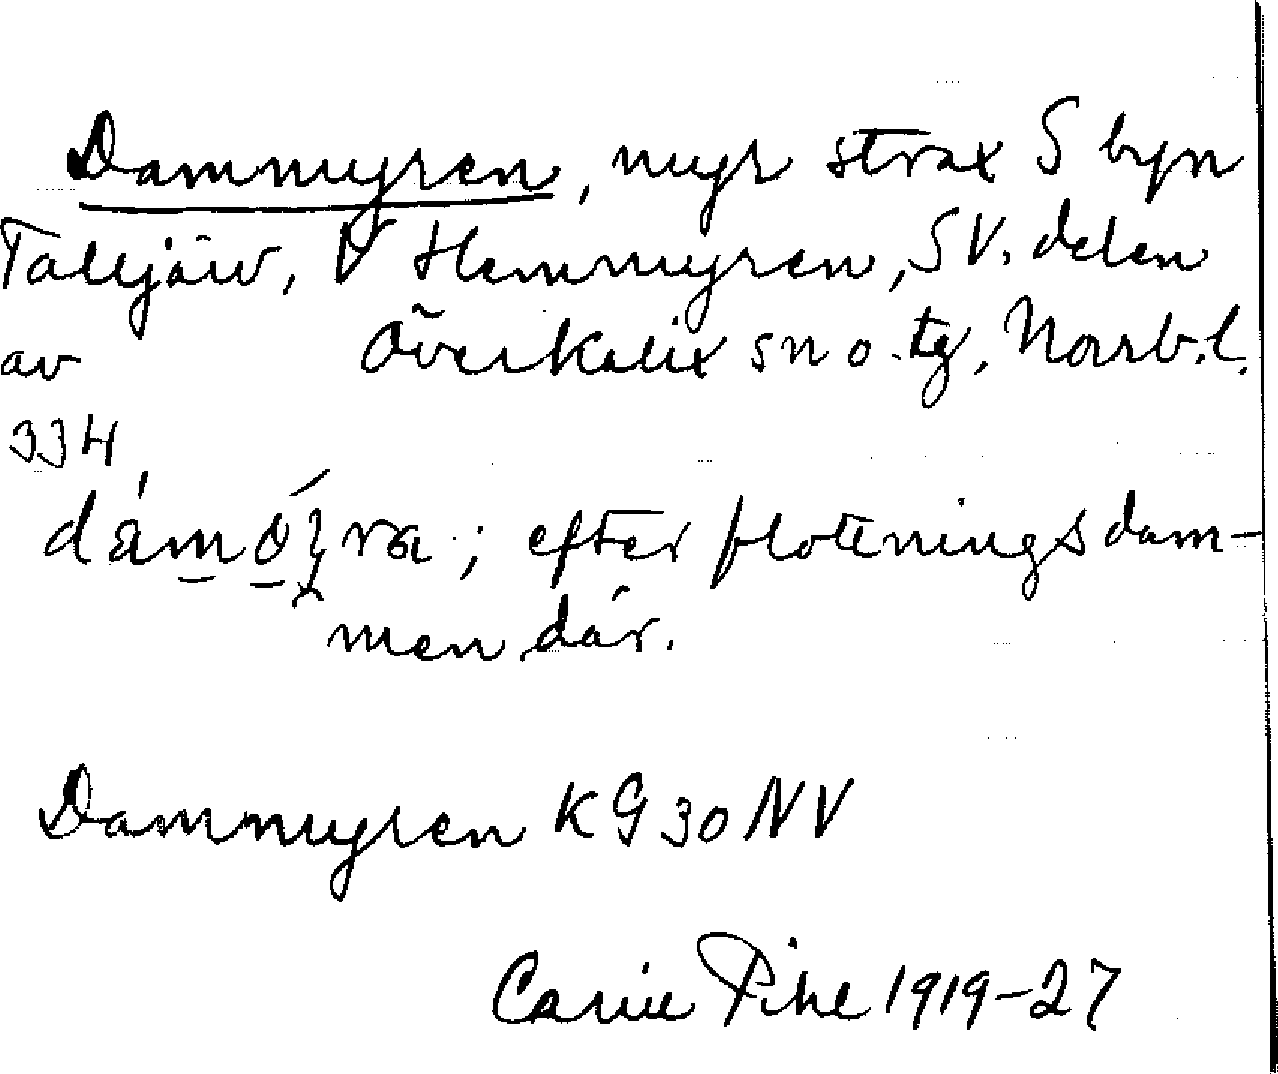 Dammyren, myr strax S byn
Talljärv, V Hemmyren, SV. delen
av Överkalix sn o. tg, Norrb.l.
334
; efter flottningsdam-
men där.
Dammyren KG 30 NV
Carin Pihl 1919-27